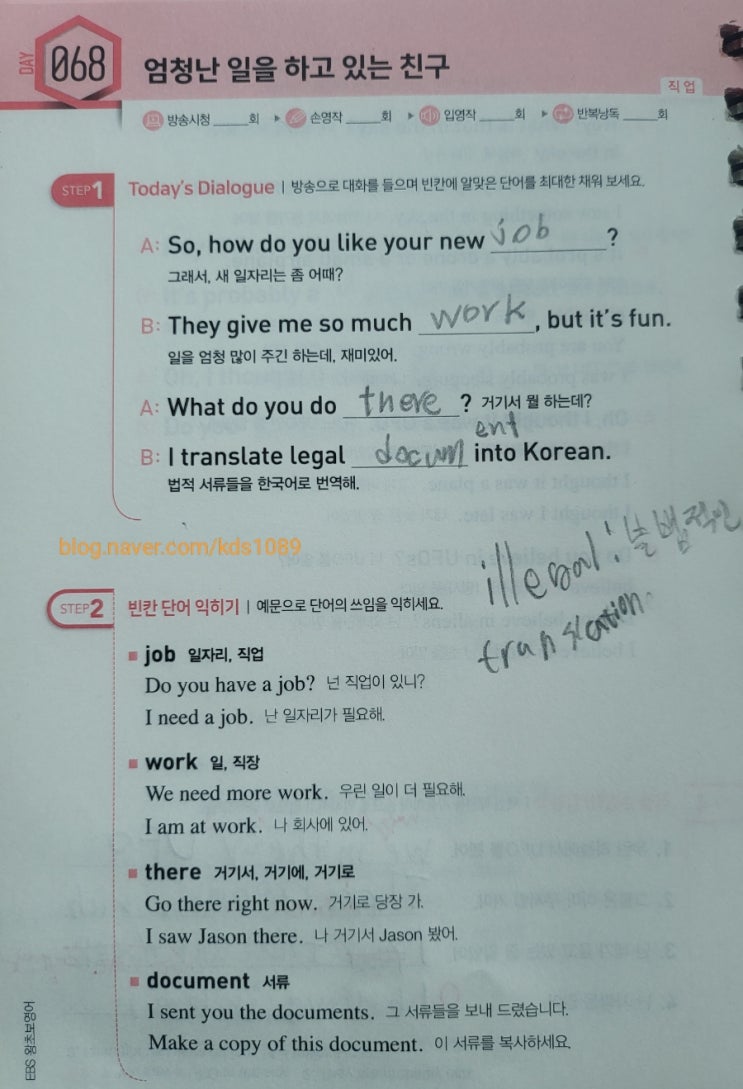 DAY 068 엄청난 일을 하고 있는 친구
직업
방송시청 _____회 ▶ 손영작 _____회 ▶ 입영작 _____회 ▶ 반복낭독 _____회
STEP 1 Today's Dialogue | 방송으로 대화를 들으며 빈칸에 알맞은 단어를 최대한 채워 보세요.
A: So, how do you like your new job?
그래서, 새 일자리는 좀 어때?
B: They give me so much work, but it's fun.
일을 엄청 많이 주긴 하는데, 재미있어.
A: What do you do there? 거기서 뭘 하는데?
B: I translate legal document into Korean.
법적 서류들을 한국어로 번역해.
blog.naver.com/kds1089
illegal: 불법적인
translation
STEP 2 빈칸 단어 익히기 | 예문으로 단어의 쓰임을 익히세요.
■ job 일자리, 직업
Do you have a job? 넌 직업이 있니?
I need a job. 난 일자리가 필요해.
■ work 일, 직장
We need more work. 우린 일이 더 필요해.
I am at work. 나 회사에 있어.
■ there 거기서, 거기에, 거기로
Go there right now. 거기로 당장 가.
I saw Jason there. 나 거기서 Jason 봤어.
■ document 서류
I sent you the documents. 그 서류들을 보내 드렸습니다.
Make a copy of this document. 이 서류를 복사하세요.
EBS 왕초보영어